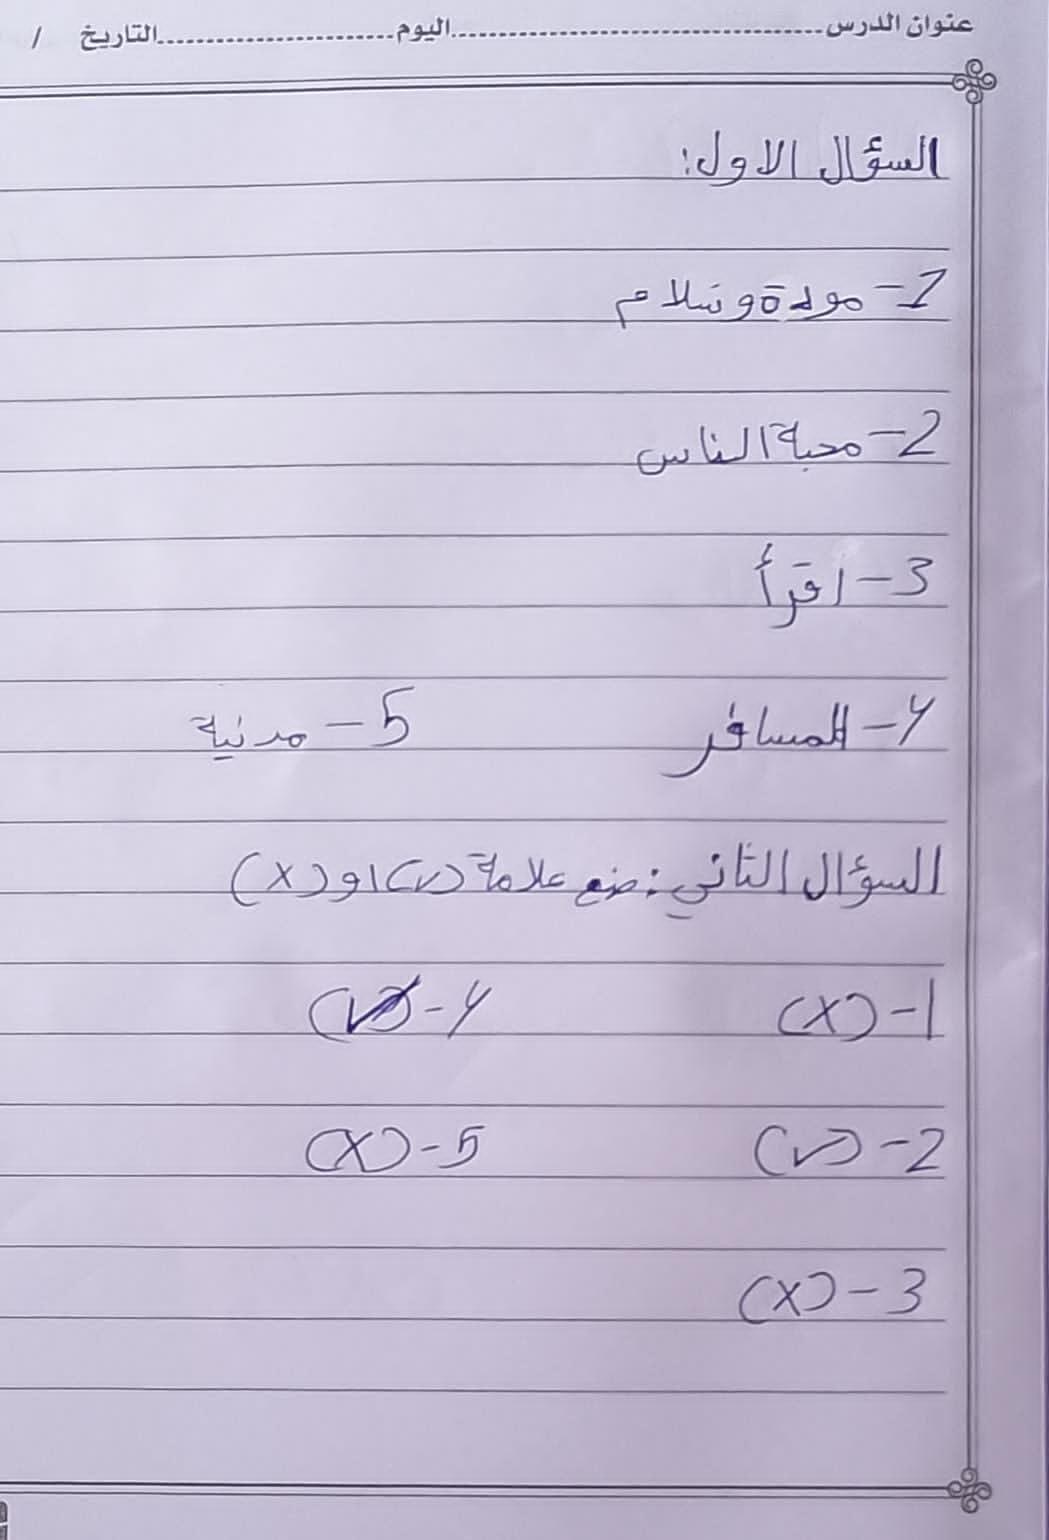 عنوان الدرس..........................................اليوم..........................التاريخ /
السؤال الاول:
1- مودة وسلام
2- محبة الناس
3- اقرأ
4- المسافر 5- مدنية
السؤال الثاني: ضع علامة (✓) او (x)
1- (x) 4- (✓)
2- (✓) 5- (x)
3- (x)